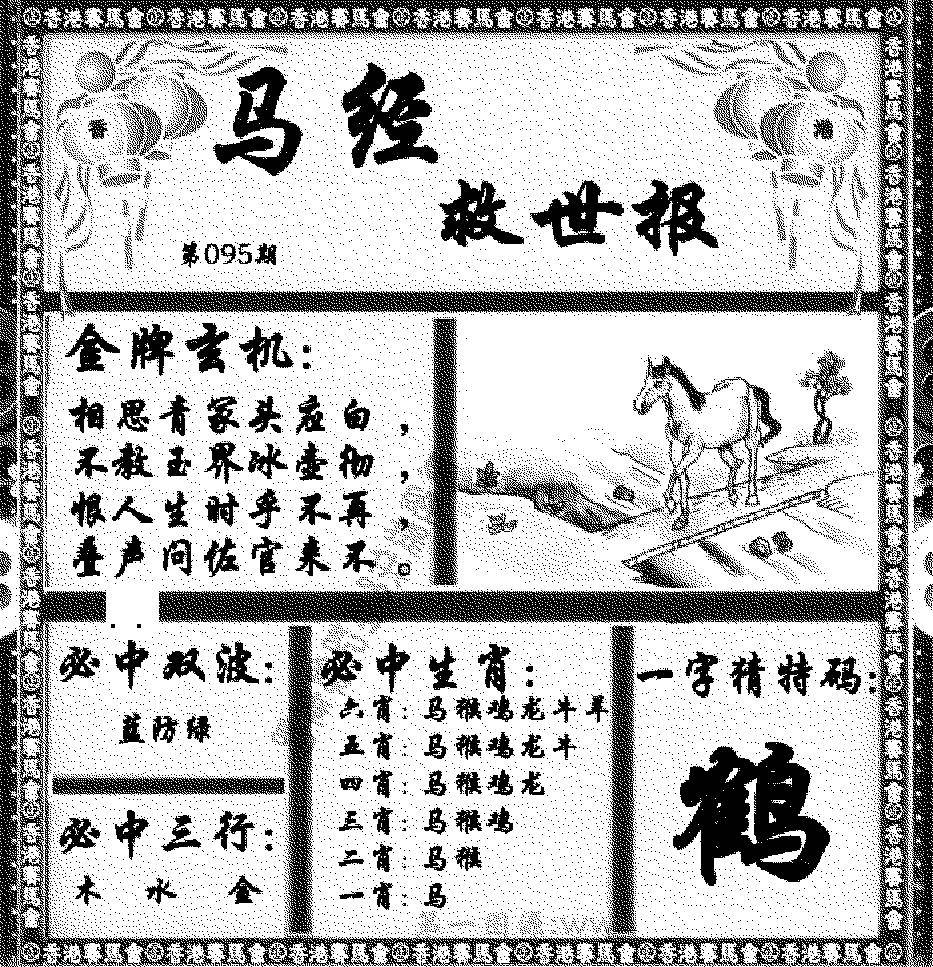 香港賽馬會 香港賽馬會 香港賽馬會 香港賽馬會 香港賽馬會 香港賽馬會 香港賽馬會
香
港
马经
救世报
第095期
金牌玄机:
相思青冢头应白,
不教玉界冰壶彻,
恨人生时乎不再,
叠声问佐官来不。
必中双波:
蓝防绿
必中三行:
木 水 金
必中生肖:
六肖: 马猴鸡龙牛羊
五肖: 马猴鸡龙牛
四肖: 马猴鸡龙
三肖: 马猴鸡
二肖: 马猴
一肖: 马
一字猜特码:
鹤
香港賽馬會 香港賽馬會 香港賽馬會 香港賽馬會 香港賽馬會 香港賽馬會 香港賽馬會